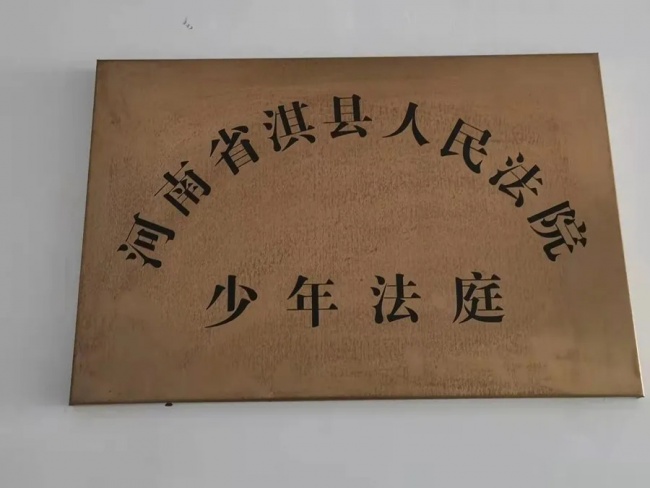 河南省淇县人民法院
少年法庭